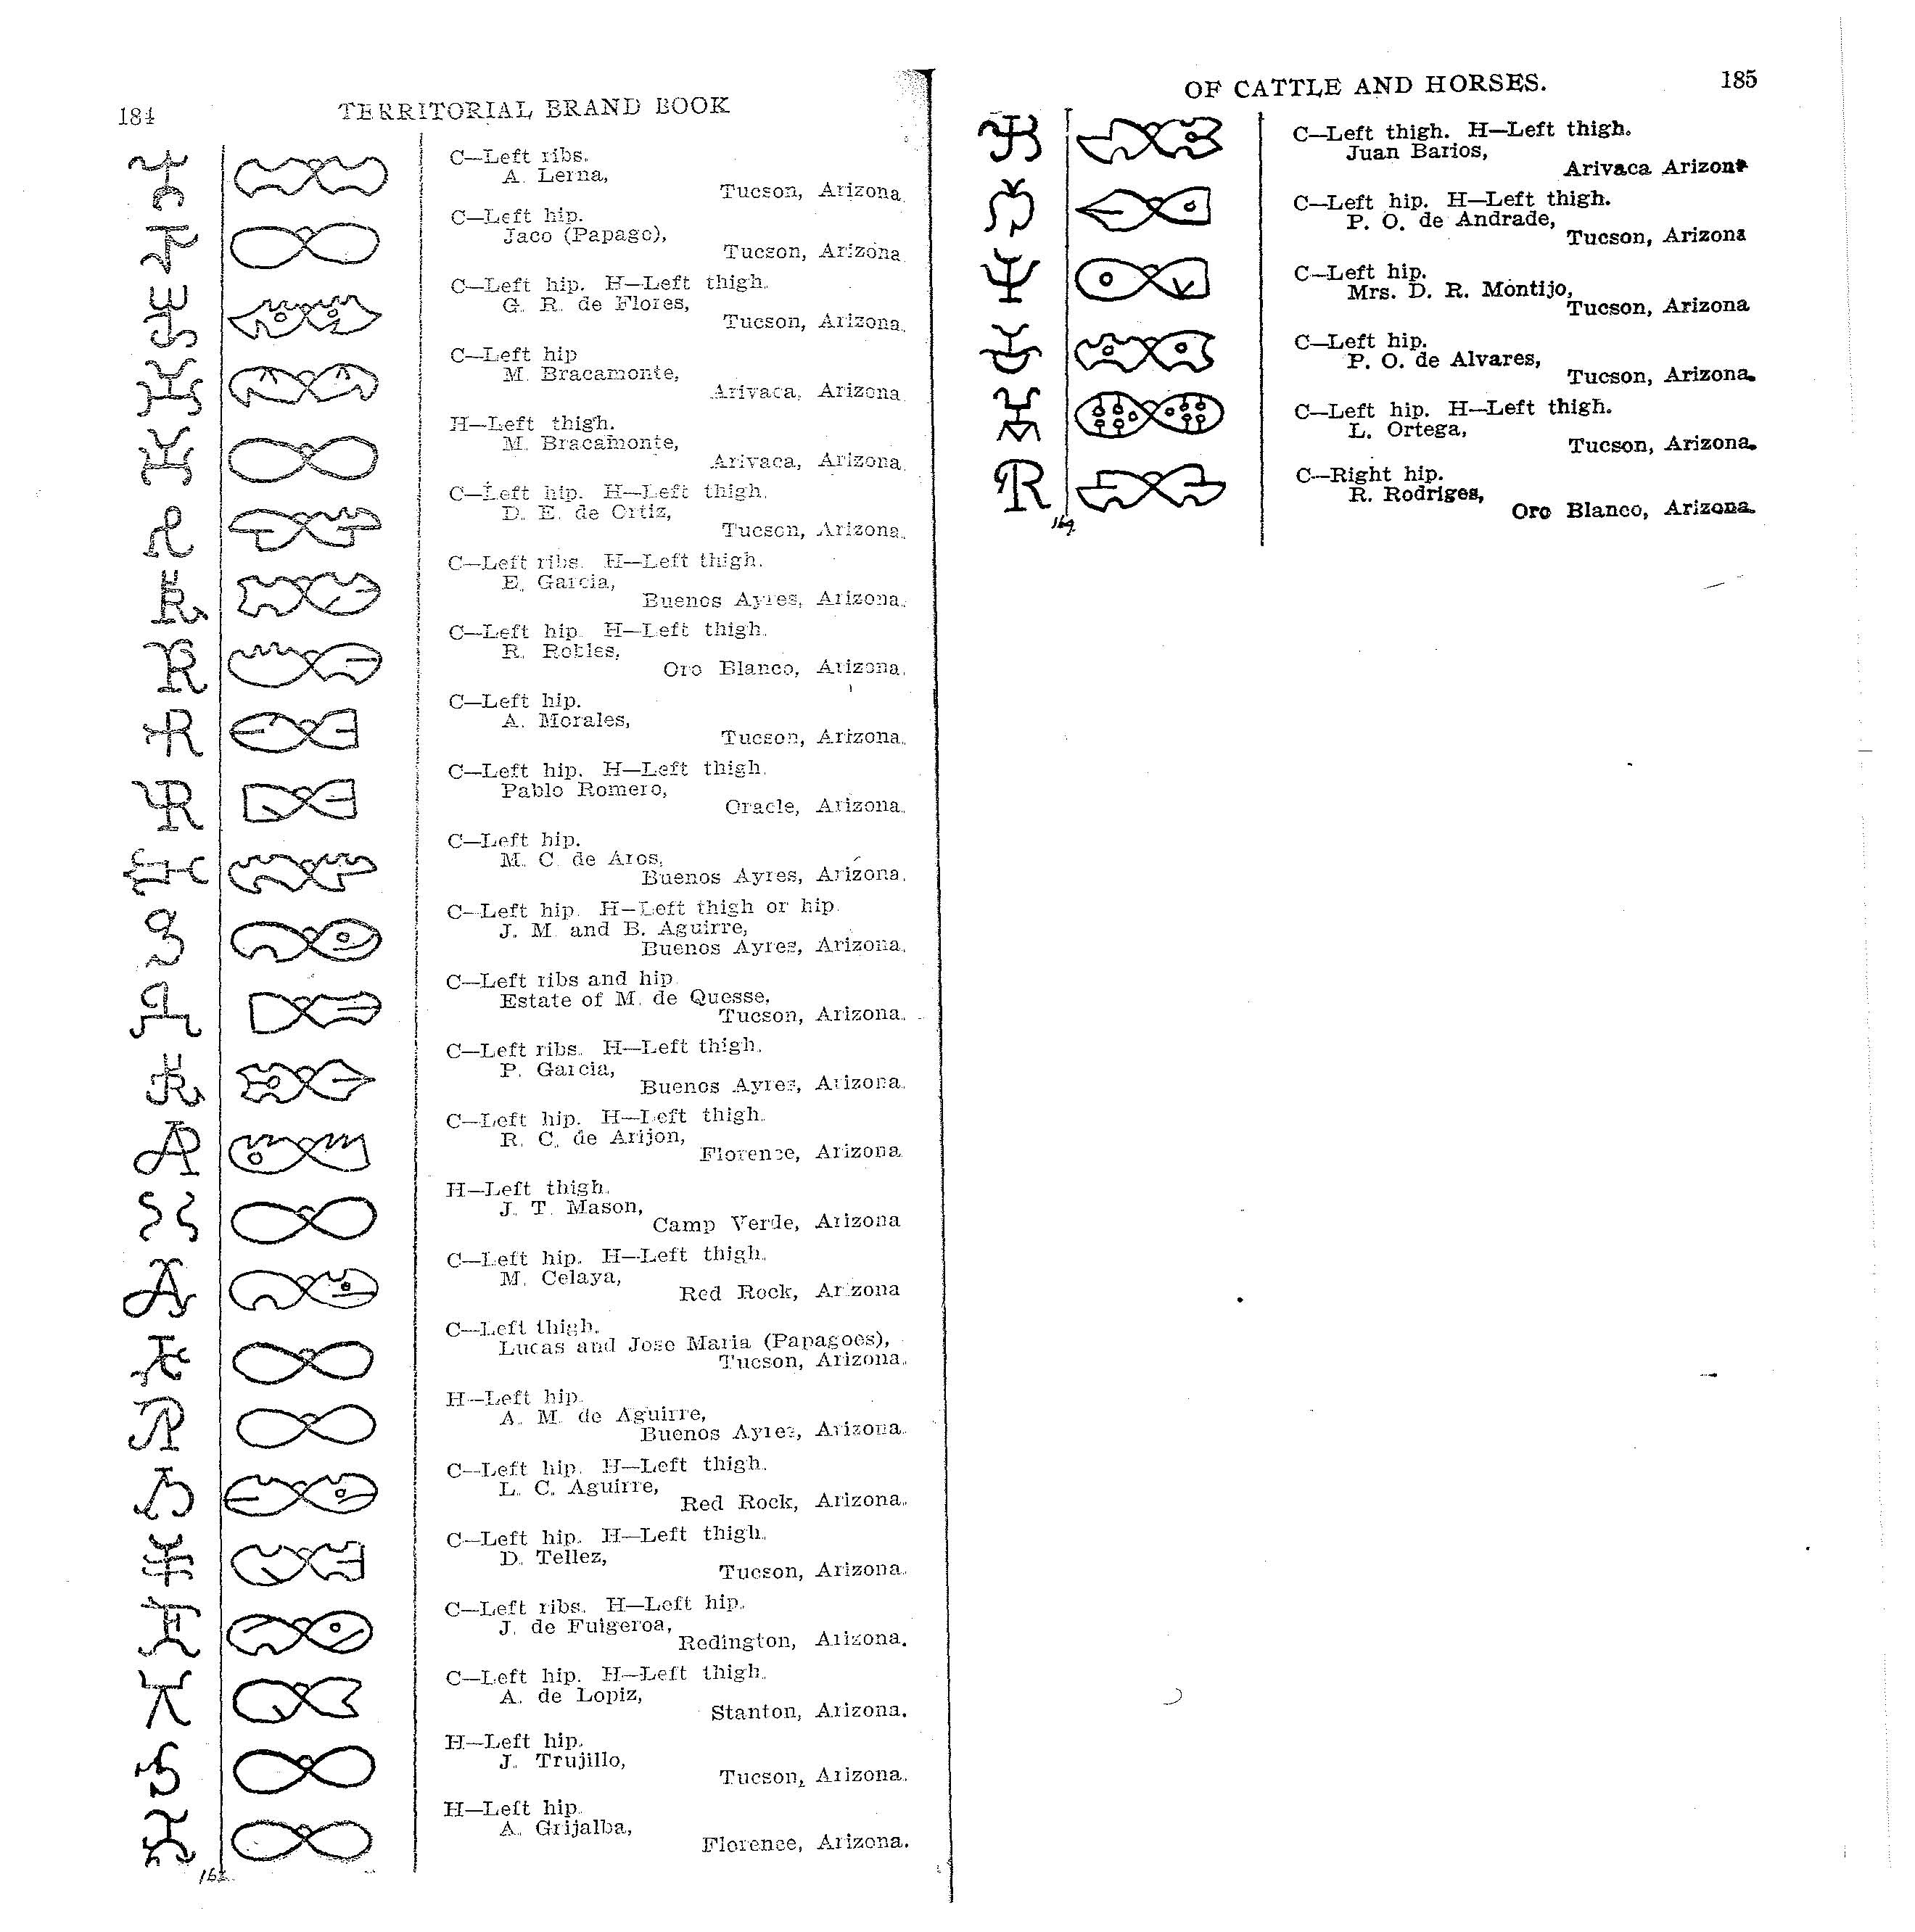 184 TERRITORIAL BRAND BOOK
C—Left ribs.
A. Lerna,
Tucson, Arizona
C—Left hip.
Jaco (Papago),
Tucson, Arizona
C—Left hip. H—Left thigh.
G. R. de Flores,
Tucson, Arizona.
C—Left hip
M. Bracamonte,
Arivaca, Arizona
H—Left thigh.
M. Bracamonte,
Arivaca, Arizona.
C—Left hip. H—Left thigh.
D. E. de Ortiz,
Tucson, Arizona.
C—Left ribs. H—Left thigh.
E. Garcia,
Buenos Ayres, Arizona.
C—Left hip. H—Left thigh.
R. Robles,
Oro Blanco, Arizona.
C—Left hip.
A. Morales,
Tucson, Arizona.
C—Left hip. H—Left thigh.
Pablo Romero,
Oracle, Arizona.
C—Left hip.
M. C. de Aros,
Buenos Ayres, Arizona.
C—Left hip. H—Left thigh or hip.
J. M. and B. Aguirre,
Buenos Ayres, Arizona.
C—Left ribs and hip.
Estate of M. de Quesse,
Tucson, Arizona.
C—Left ribs. H—Left thigh.
P. Garcia,
Buenos Ayres, Arizona.
C—Left hip. H—Left thigh.
R. C. de Arijon,
Florence, Arizona
H—Left thigh.
J. T. Mason,
Camp Verde, Arizona
C—Left hip. H—Left thigh.
M. Celaya,
Red Rock, Arizona
C—Left thigh.
Lucas and Jose Maria (Papagoes),
Tucson, Arizona.
H—Left hip.
A. M. de Aguirre,
Buenos Ayres, Arizona.
C—Left hip. H—Left thigh.
L. C. Aguirre,
Red Rock, Arizona.
C—Left hip. H—Left thigh.
D. Tellez,
Tucson, Arizona.
C—Left ribs. H—Left hip.
J. de Fuigeroa,
Redington, Arizona.
C—Left hip. H—Left thigh.
A. de Lopiz,
Stanton, Arizona.
H—Left hip.
J. Trujillo,
Tucson, Arizona.
H—Left hip.
A. Grijalba,
Florence, Arizona.
OF CATTLE AND HORSES. 185
C—Left thigh. H—Left thigh.
Juan Barios,
Arivaca Arizona
C—Left hip. H—Left thigh.
P. O. de Andrade,
Tucson, Arizona
C—Left hip.
Mrs. D. R. Montijo,
Tucson, Arizona
C—Left hip.
P. O. de Alvares,
Tucson, Arizona.
C—Left hip. H—Left thigh.
L. Ortega,
Tucson, Arizona.
C—Right hip.
R. Rodriges,
Oro Blanco, Arizona.